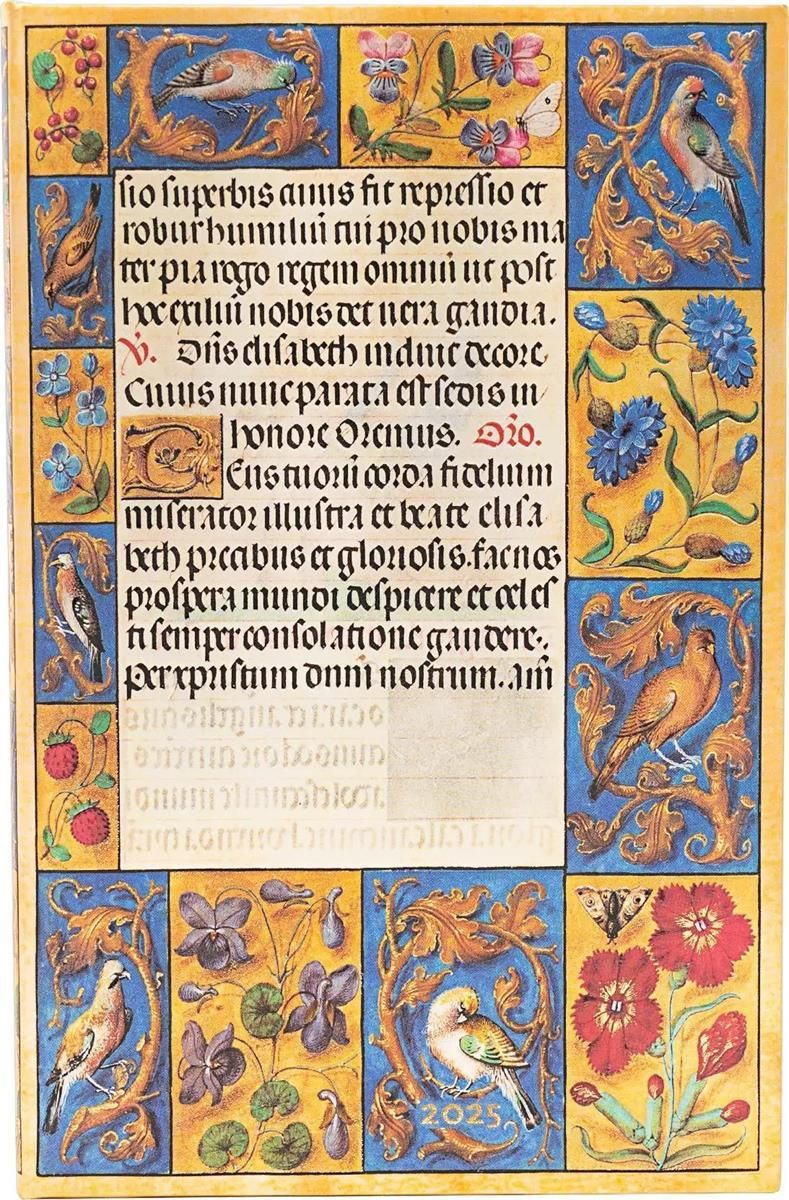 sio superbis cuius fit repressio et
robur humiliū tui pro nobis ma
ter pia rogo regem omniū ut post
hoc exiliū nobis det uera gaudia.
V. Dn̄s elisabeth induit decore
Cuius nunc parata est sedis in
honore Oremus. Or̄o.
Deus tuorū corda fidelium
miserator illustra et beate elisa
beth precibus et gloriosis. fac nos
prospera mundi despicere et celes
ti semper consolatione gaudere.
Per xpristum dnm̄ nostrum. am̄
2025